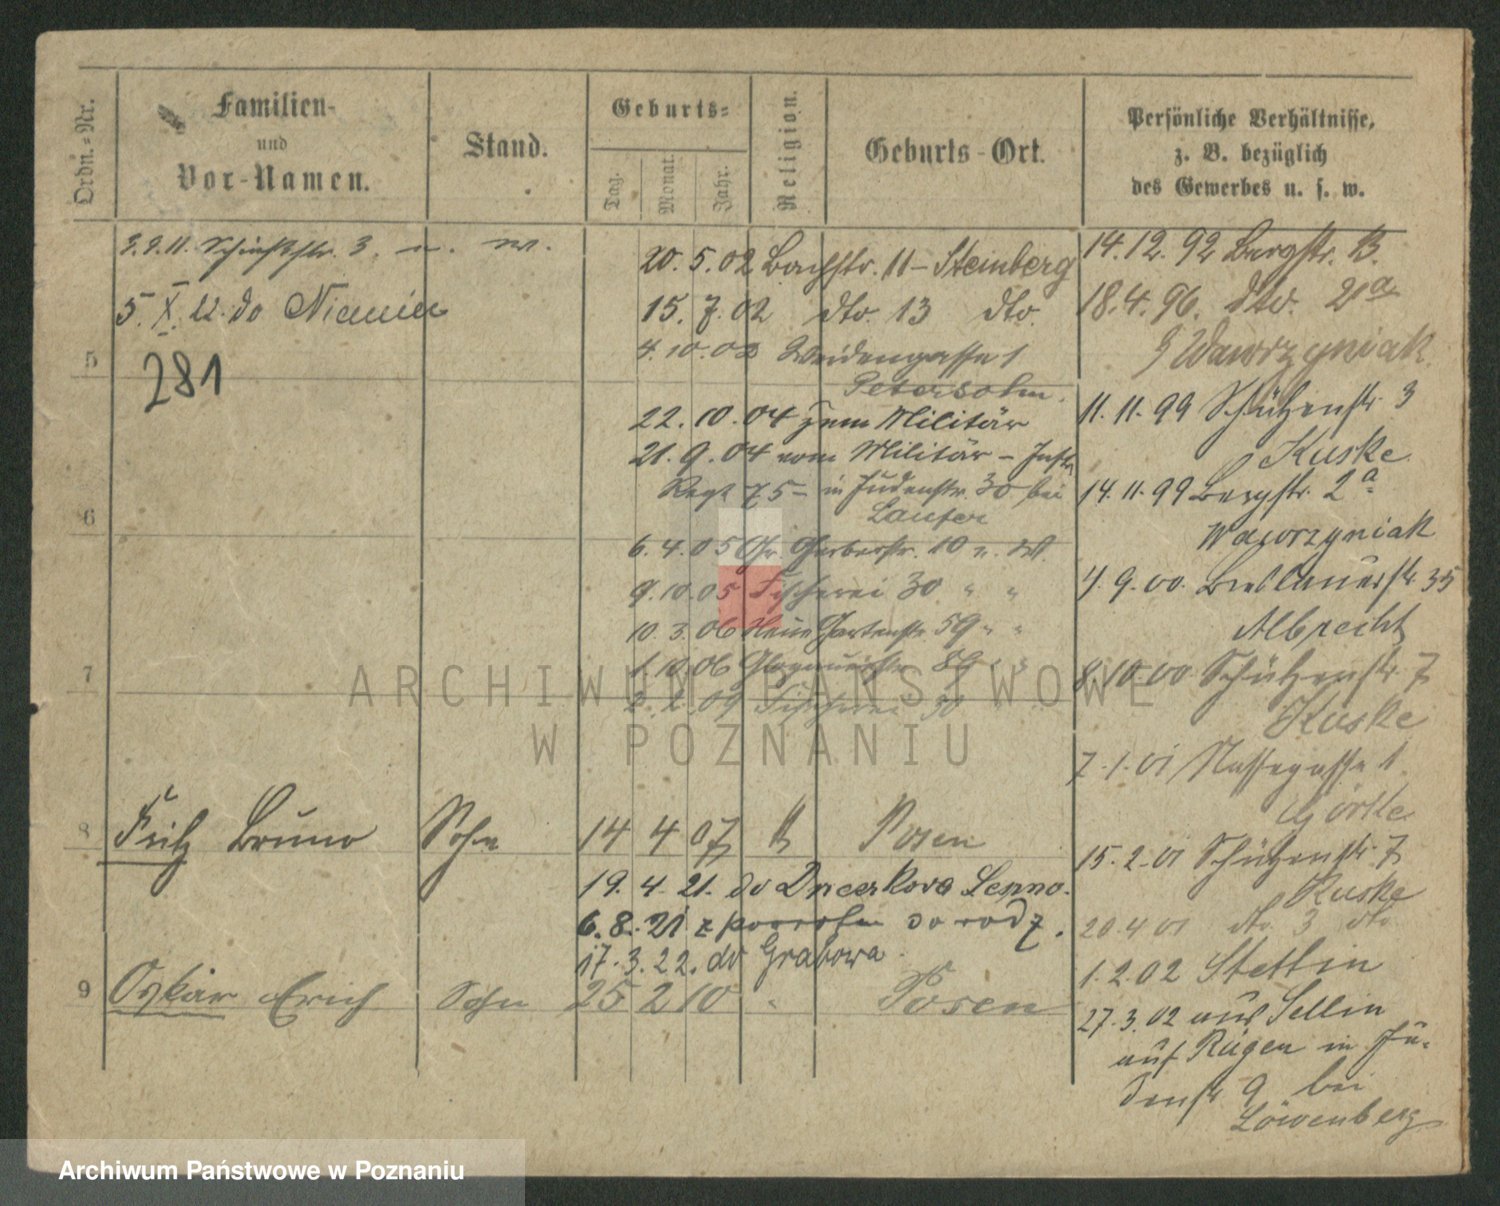 Ordn.-Nr.
Familien-
und
Vor-Namen.
Stand.
Geburts-
Tag.
Monat.
Jahr.
Religion.
Geburts-Ort.
Persönliche Verhältnisse,
z. B. bezüglich
des Gewerbes u. s. w.
3.9.11. 3. u. w.
5. X. 22. do Niemiec
281
5
6
7
20. 5. 02 Bachstr. 11 - Steinberg
15. 7. 02 dto. 13 dto.
4. 10. 02 Weidengasse 1
Petersohn.
22. 10. 04 zum Militär
21. 9. 04 vom Militär - Inft.
Regt 75 - in Judenstr. 30 bei
Laufer
6. 4. 05 Gr. Gerberstr. 10 u. W.
9. 10. 05 Fischerei 30 " "
10. 3. 06 Neue Gartenstr 59 " "
1. 10. 06 Glogauerstr. 89 " "
2. 2. 09 Fischerei 30
8 Fritz Bruno Sohn 14 4 07 Posen
19. 4. 21. do Lenno.
6. 8. 21 z powrotem do rodz.
17. 3. 22. do Grabowa.
9 Oskar Erich Sohn 25 2 10 " Posen
14. 12. 92 Bergstr. 13.
18. 4. 96. dto. 21a
Wawrzyniak
11. 11. 99 Schützenstr. 3
Kuske
14. 11. 99 Bergstr. 2a
Wawrzyniak
4. 9. 00. Breslauerstr 35
Albrecht
8. 10. 00 Schützenstr. 7
Kuske
7. 1. 01 Nassegasse 1
Görtke
15. 2. 01 Schützenstr. 7
Kuske
20. 4. 01 dto. 3 dto
1. 2. 02 Stettin
27. 3. 02 aus Sellin
auf Rügen in Ju-
denstr 9 bei
Löwenberg
ARCHIWUM PAŃSTWOWE
W POZNANIU
Archiwum Państwowe w Poznaniu